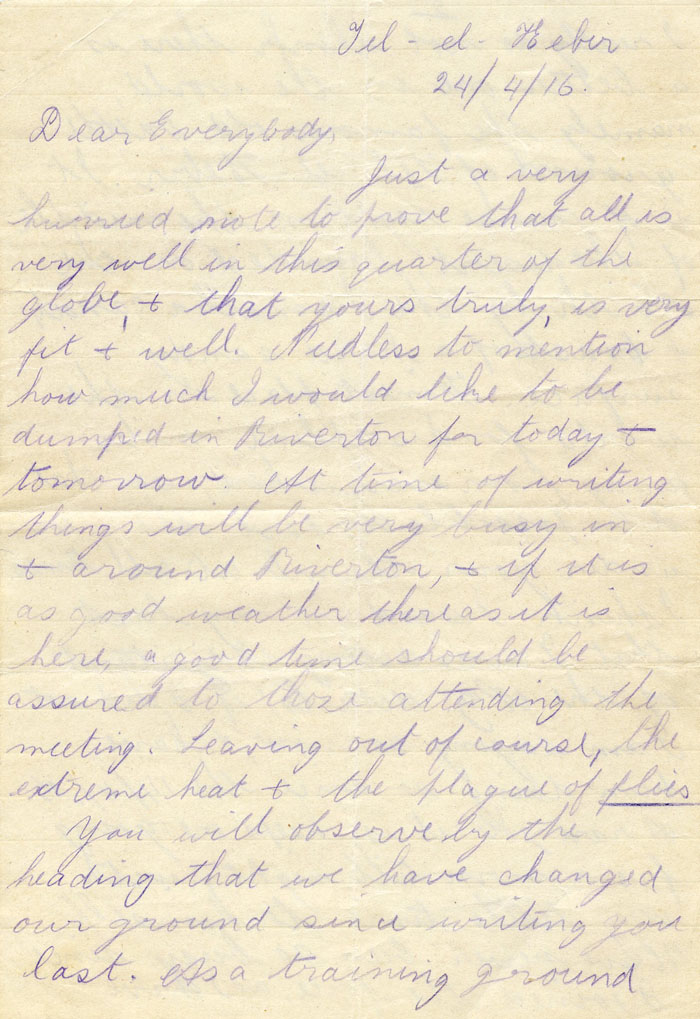 Tel-el-Kebir
24/4/16.
Dear Everybody,
Just a very
hurried note to prove that all is
very well in this quarter of the
globe, + that yours truly, is very
fit + well. Needless to mention
how much I would like to be
dumped in Riverton for today +
tomorrow. At time of writing
things will be very busy in
+ around Riverton, + if it is
as good weather there as it is
here, a good time should be
assured to those attending the
meeting. Leaving out of course, the
extreme heat + the plague of flies
You will observe by the
heading that we have changed
our ground since writing you
last. As a training ground